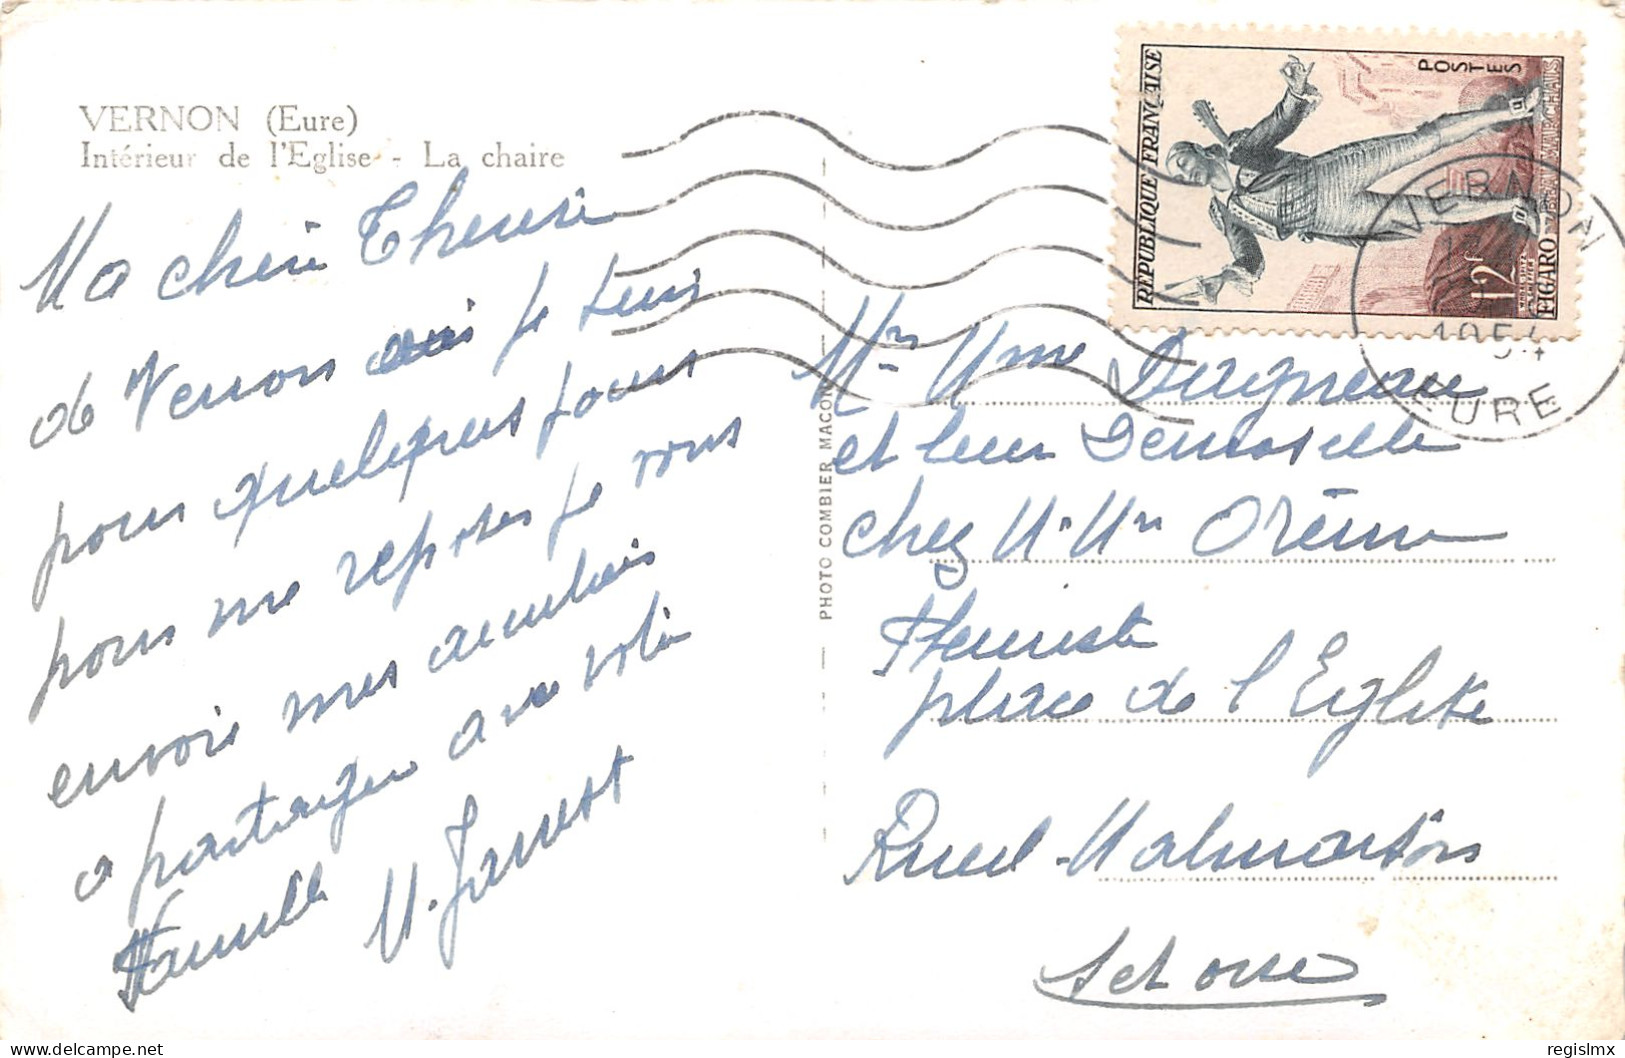 VERNON (Eure)
Intérieur de l'Eglise - La chaire
Ma chère Thérèse
de Vernon où je suis
pour quelques jours
pour me reposer je vous
envoie mes amitiés
a partager avec votre
famille M. Jannest
PHOTO COMBIER MACON
REPUBLIQUE FRANÇAISE
POSTES
12F
FIGARO
BEAUMARCHAIS
VERNON
1954
EURE
Mr Mme Dagneau
et leur Demoiselle
chez M. Mm
Fleuriste
place de l'Eglise
Rueil-Malmaison
S et oise
regislmx
delcampe.net